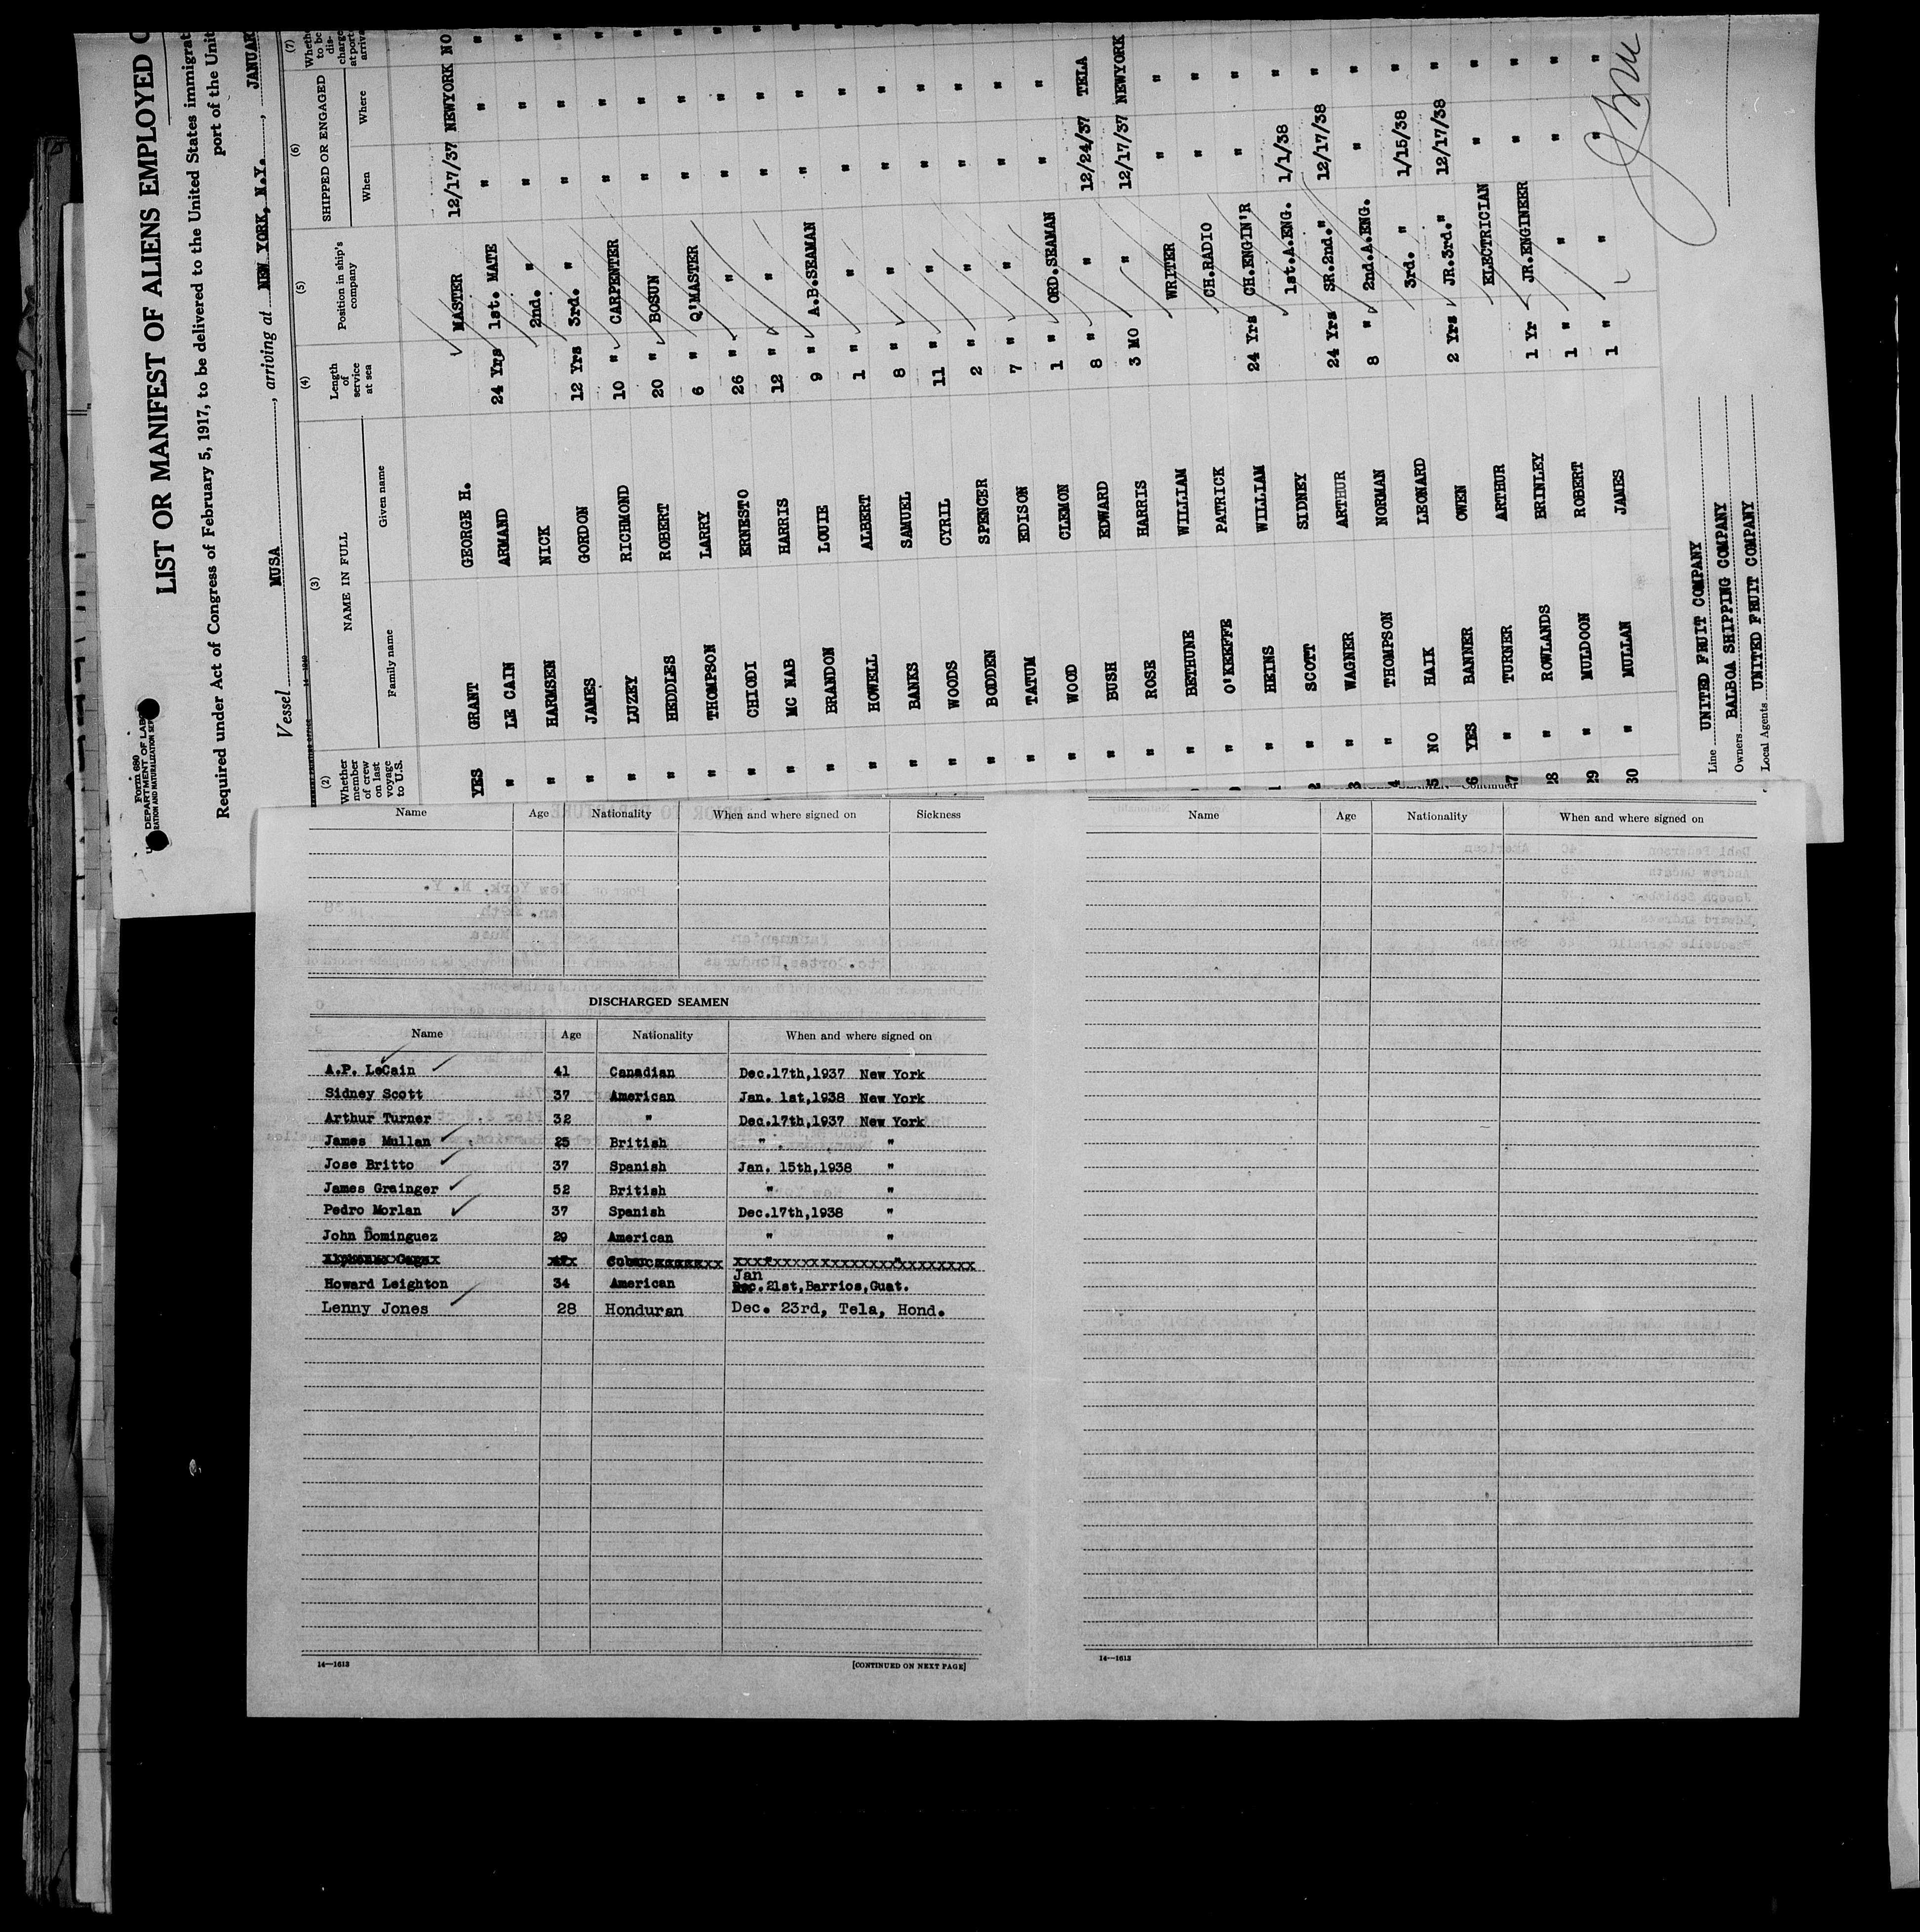 Form 680
DEPARTMENT OF LABOR
LIST OR MANIFEST OF ALIENS EMPLOYED
Required under Act of Congress of February 5, 1917, to be delivered to the United States immigrat
port of the Unit
Vessel MUSA, arriving at NEW YORK, N.Y., JANUAR
(2) (3) (4) (5) (6) (7)
Whether member of crew on last voyage to U.S. NAME IN FULL Length of service at sea Position in ship's company SHIPPED OR ENGAGED Whethe to be dis- charge at port arriva
Family name Given name When Where
YES GRANT GEORGE H. MASTER 12/17/37 NEWYORK NO
" LE CAIN ARMAND 24 Yrs 1st. MATE " " "
" HARMSEN NICK 2nd. " " " "
" JAMES GORDON 12 Yrs 3rd. " " " "
" LUZEY RICHMOND 10 " CARPENTER " " "
" HEDDLES ROBERT 20 " BOSUN " " "
" THOMPSON LARRY 6 " Q'MASTER " " "
" CHIODI ERNESTO 26 " " " " "
" MC NAB HARRIS 12 " " " " "
" BRANDON LOUIE 9 " A.B.SEAMAN " " "
" HOWELL ALBERT 1 " " " " "
" BANKS SAMUEL 8 " " " " "
" WOODS CYRIL 11 " " " " "
" BODDEN SPENCER 2 " " " " "
" TATUM EDISON 7 " " " " "
" WOOD CLEMON 1 " ORD.SEAMAN " " "
" BUSH EDWARD 8 " " 12/24/37 TELA "
" ROSE HARRIS 3 MO " 12/17/37 NEWYORK "
" BETHUNE WILLIAM WRITER " " "
" O'KEEFFE PATRICK CH.RADIO " " "
" HEINS WILLIAM 24 Yrs CH.ENGIN'R " " "
" SCOTT SIDNEY 1st.A.ENG. 1/1/38 " "
" WAGNER ARTHUR 24 Yrs SR.2nd." 12/17/38 " "
" THOMPSON NORMAN 8 " 2nd.A.ENG. " " "
5 NO HAIK LEONARD 3rd. " 1/15/38 " "
6 YES BANNER OWEN 2 Yrs JR.3rd." 12/17/38 " "
27 " TURNER ARTHUR ELECTRICIAN " " "
28 " ROWLANDS BRINLEY 1 Yr JR.ENGINEER " " "
29 " MULDOON ROBERT 1 " " " " "
30 " MULLAN JAMES 1 " " " "
Line UNITED FRUIT COMPANY
Owners BALBOA SHIPPING COMPANY
Local Agents UNITED FRUIT COMPANY
Name Age Nationality When and where signed on Sickness
DISCHARGED SEAMEN
Name Age Nationality When and where signed on
A.P. LeCain 41 Canadian Dec.17th,1937 New York
Sidney Scott 37 American Jan. 1st,1938 New York
Arthur Turner 32 " Dec.17th,1937 New York
James Mullan 25 British " "
Jose Britto 37 Spanish Jan. 15th,1938 "
James Grainger 52 British " "
Pedro Morlan 37 Spanish Dec.17th,1938 "
John Dominguez 29 American " "
Howard Leighton 34 American Jan .21st,Barrios,Guat.
Lenny Jones 28 Honduran Dec. 23rd, Tela, Hond.
14—1613 [CONTINUED ON NEXT PAGE]
Continued
Name Age Nationality When and where signed on
14—1613